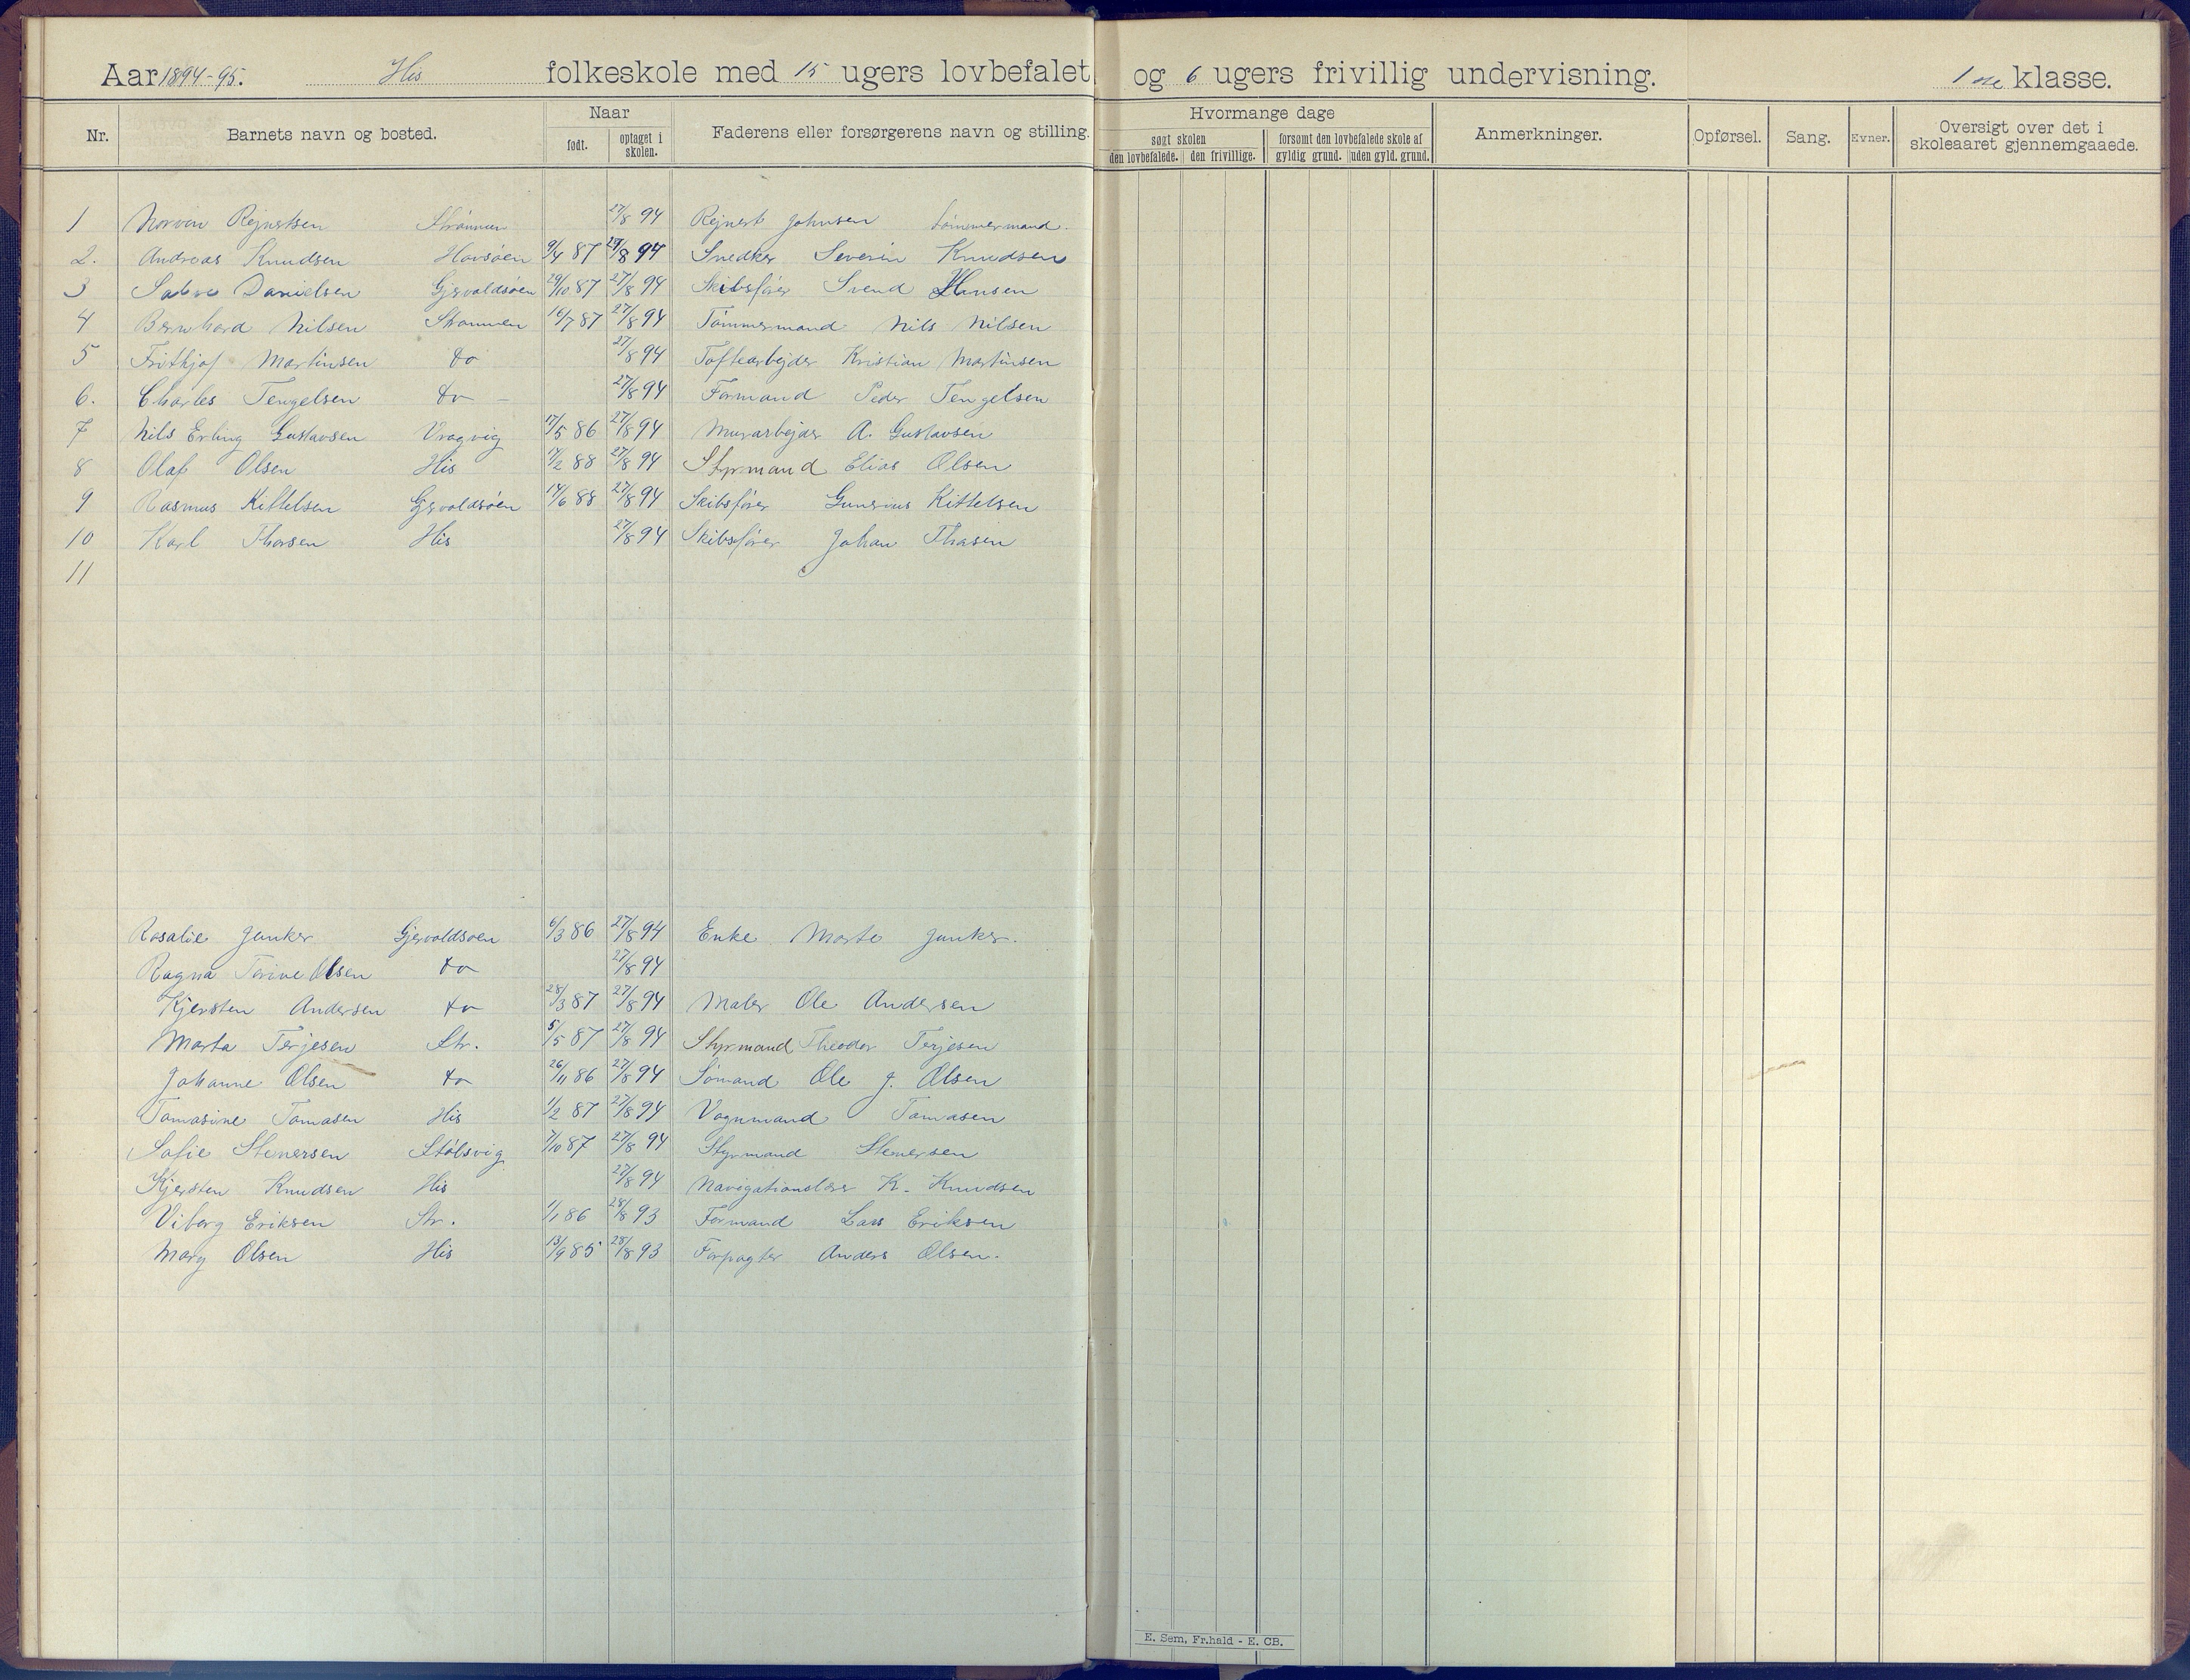 Aar 1894-95. His folkeskole med 15 ugers lovbefalet og 6 ugers frivillig undervisning. 1ste klasse.
Nr. Barnets navn og bosted. Naar født. optaget i skolen. Faderens eller forsørgerens navn og stilling. Hvormange dage søgt skolen den lovbefalede. den frivillige. forsømt den lovbefalede skole af gyldig grund. uden gyld. grund. Anmerkninger. Opførsel. Sang. Evner. Oversigt over det i skoleaaret gjennemgaaede.
1 Rejnertsen Strømmen 27/8 94 Rejnert Johnsen tømmermand.
2. Andreas Knudsen Havsøen 9/4 87 27/8 94 Snedker Severin Knudsen
3 Danielsen Gjervoldsøen 29/10 87 27/8 94 Skibsfører Svend Hansen
4 Bernhard Nilsen Strømmen 16/7 87 27/8 94 Tømmermand Nils Nilsen
5 Frithjof Martinsen do 27/8 94 Toftearbejder Kristian Martinsen
6. Charles Tengelsen do - 27/8 94 Formand Peder Tengelsen
7 Nils Erling Gustavsen Vragvig 17/5 86 27/8 94 Murarbejder A. Gustavsen
8 Olaf Olsen His 17/2 88 27/8 94 Styrmand Elias Olsen
9 Rasmus Kittelsen Gjervoldsøen 14/6 88 27/8 94 Skibsfører Gunvius Kittelsen
10 Karl Thorsen His 27/8 94 Skibsfører Johan Thasen
11
Rosalie Junker Gjervoldsøen 6/3 86 27/8 94 Enke Marte Junker.
Ragna Terine Olsen do 27/8 94
Kjersten Andersen do 28/3 87 27/8 94 Maler Ole Andersen
Marta Terjesen Str. 5/5 87 27/8 94 Styrmand Theodor Terjesen
Johanne Olsen do 26/11 86 27/8 94 Sømand Ole J. Olsen
Tomasine Tomasen His 1/2 87 27/8 94 Vognmand Tomasen
Sofie Stenersen Stølsvig 7/10 87 27/8 94 Styrmand Stenersen
Kjersten Knudsen His 27/8 94 Navigationslærer K. Knudsen
Viborg Eriksen Str. 1/1 86 28/8 93 Formand Lars Eriksen
Mary Olsen His 13/9 85 28/8 93 Forpagter Anders Olsen.
E. Sem, Fr.hald - E. CB.